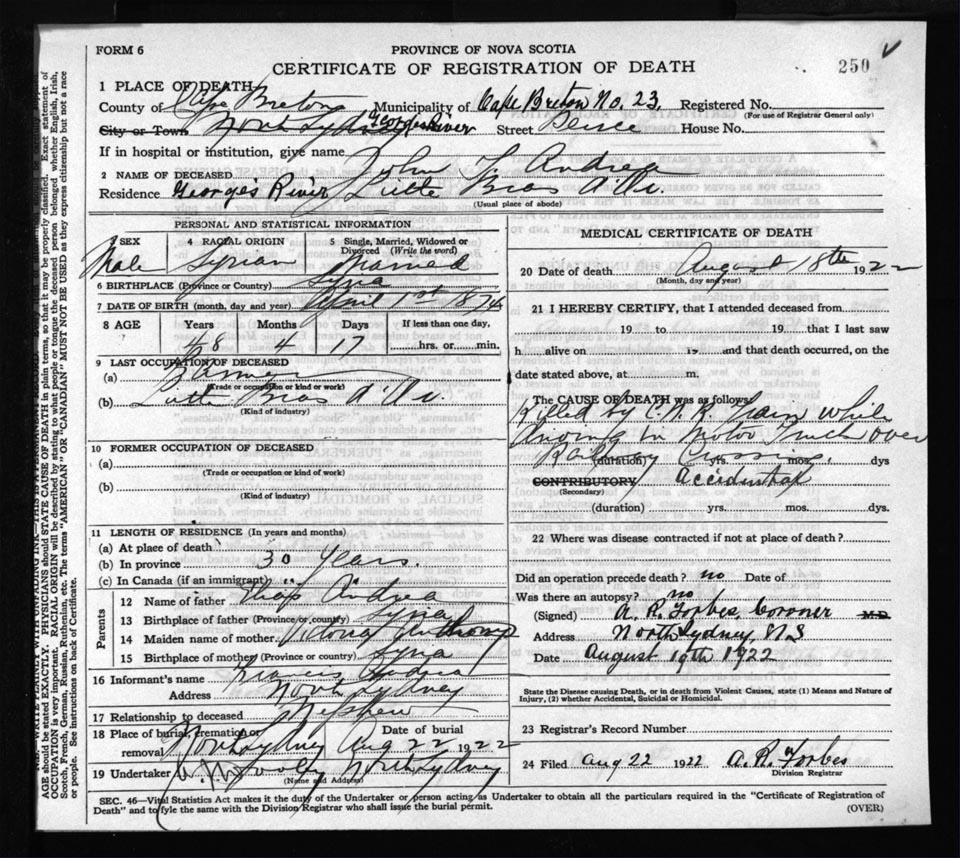 FORM 6
PROVINCE OF NOVA SCOTIA
250
CERTIFICATE OF REGISTRATION OF DEATH
1 PLACE OF DEATH
County of Cape Breton Municipality of Cape Breton No. 23. Registered No.
(For use of Registrar General only)
City or Town North Sydney Georges River Street House No.
If in hospital or institution, give name
2 NAME OF DECEASED John Andrea
Residence Georges River Little Bras d'Or
(Usual place of abode)
PERSONAL AND STATISTICAL INFORMATION
SEX 4 RACIAL ORIGIN 5 Single, Married, Widowed or Divorced (Write the word)
Male Syrian Married
6 BIRTHPLACE (Province or Country) Syria
7 DATE OF BIRTH (month, day and year) April 1st 1874
8 AGE Years Months Days If less than one day,
48 4 17 hrs. or min.
9 LAST OCCUPATION OF DECEASED
(a) Farmer
(Trade or occupation or kind or work)
(b) Little Bras d'Or
(Kind of industry)
10 FORMER OCCUPATION OF DECEASED
(a)
(Trade or occupation or kind of work)
(b)
(Kind of industry)
11 LENGTH OF RESIDENCE (In years and months)
(a) At place of death
(b) In province 30 years.
(c) In Canada (if an immigrant) "
Parents
12 Name of father Andrea
13 Birthplace of father (Province or country) Syria
14 Maiden name of mother
15 Birthplace of mother (Province or country) Syria
16 Informant's name Francis Andrea
Address North Sydney
17 Relationship to deceased Nephew
18 Place of burial, cremation or removal North Sydney Date of burial Aug 22 1922
19 Undertaker North Sydney
(Name and Address)
MEDICAL CERTIFICATE OF DEATH
20 Date of death August 18th 1922
(Month, day and year)
21 I HEREBY CERTIFY, that I attended deceased from
19 to 19 that I last saw
h alive on 19 and that death occurred, on the
date stated above, at m.
The CAUSE OF DEATH was as follows:
Killed by C.N.R. Train while
in Motor Truck over
Railway Crossing
(duration) yrs. mos. dys
CONTRIBUTORY Accidental
(Secondary)
(duration) yrs. mos. dys.
22 Where was disease contracted if not at place of death?
Did an operation precede death? no Date of
Was there an autopsy? no
(Signed) A. R. Forbes, Coroner M.D.
Address North Sydney, N.S
Date August 19th 1922
State the Disease causing Death, or in death from Violent Causes, state (1) Means and Nature of Injury, (2) whether Accidental, Suicidal or Homicidal.
23 Registrar's Record Number
24 Filed Aug 22 1922 A. R. Forbes
Division Registrar
SEC. 46—Vital Statistics Act makes it the duty of the Undertaker or person acting as Undertaker to obtain all the particulars required in the "Certificate of Registration of
Death" and to fyle the same with the Division Registrar who shall issue the burial permit.
(OVER)